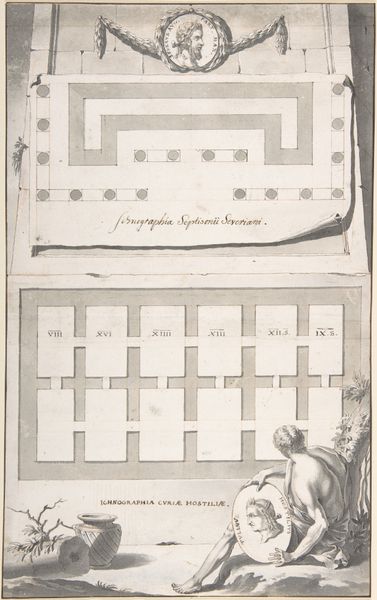 Ichnographia Septisonii Severiani.
VIII XVI XIIII XIII XII.S. IX.S.
ICHNOGRAPHIA CVRIÆ HOSTILIÆ.